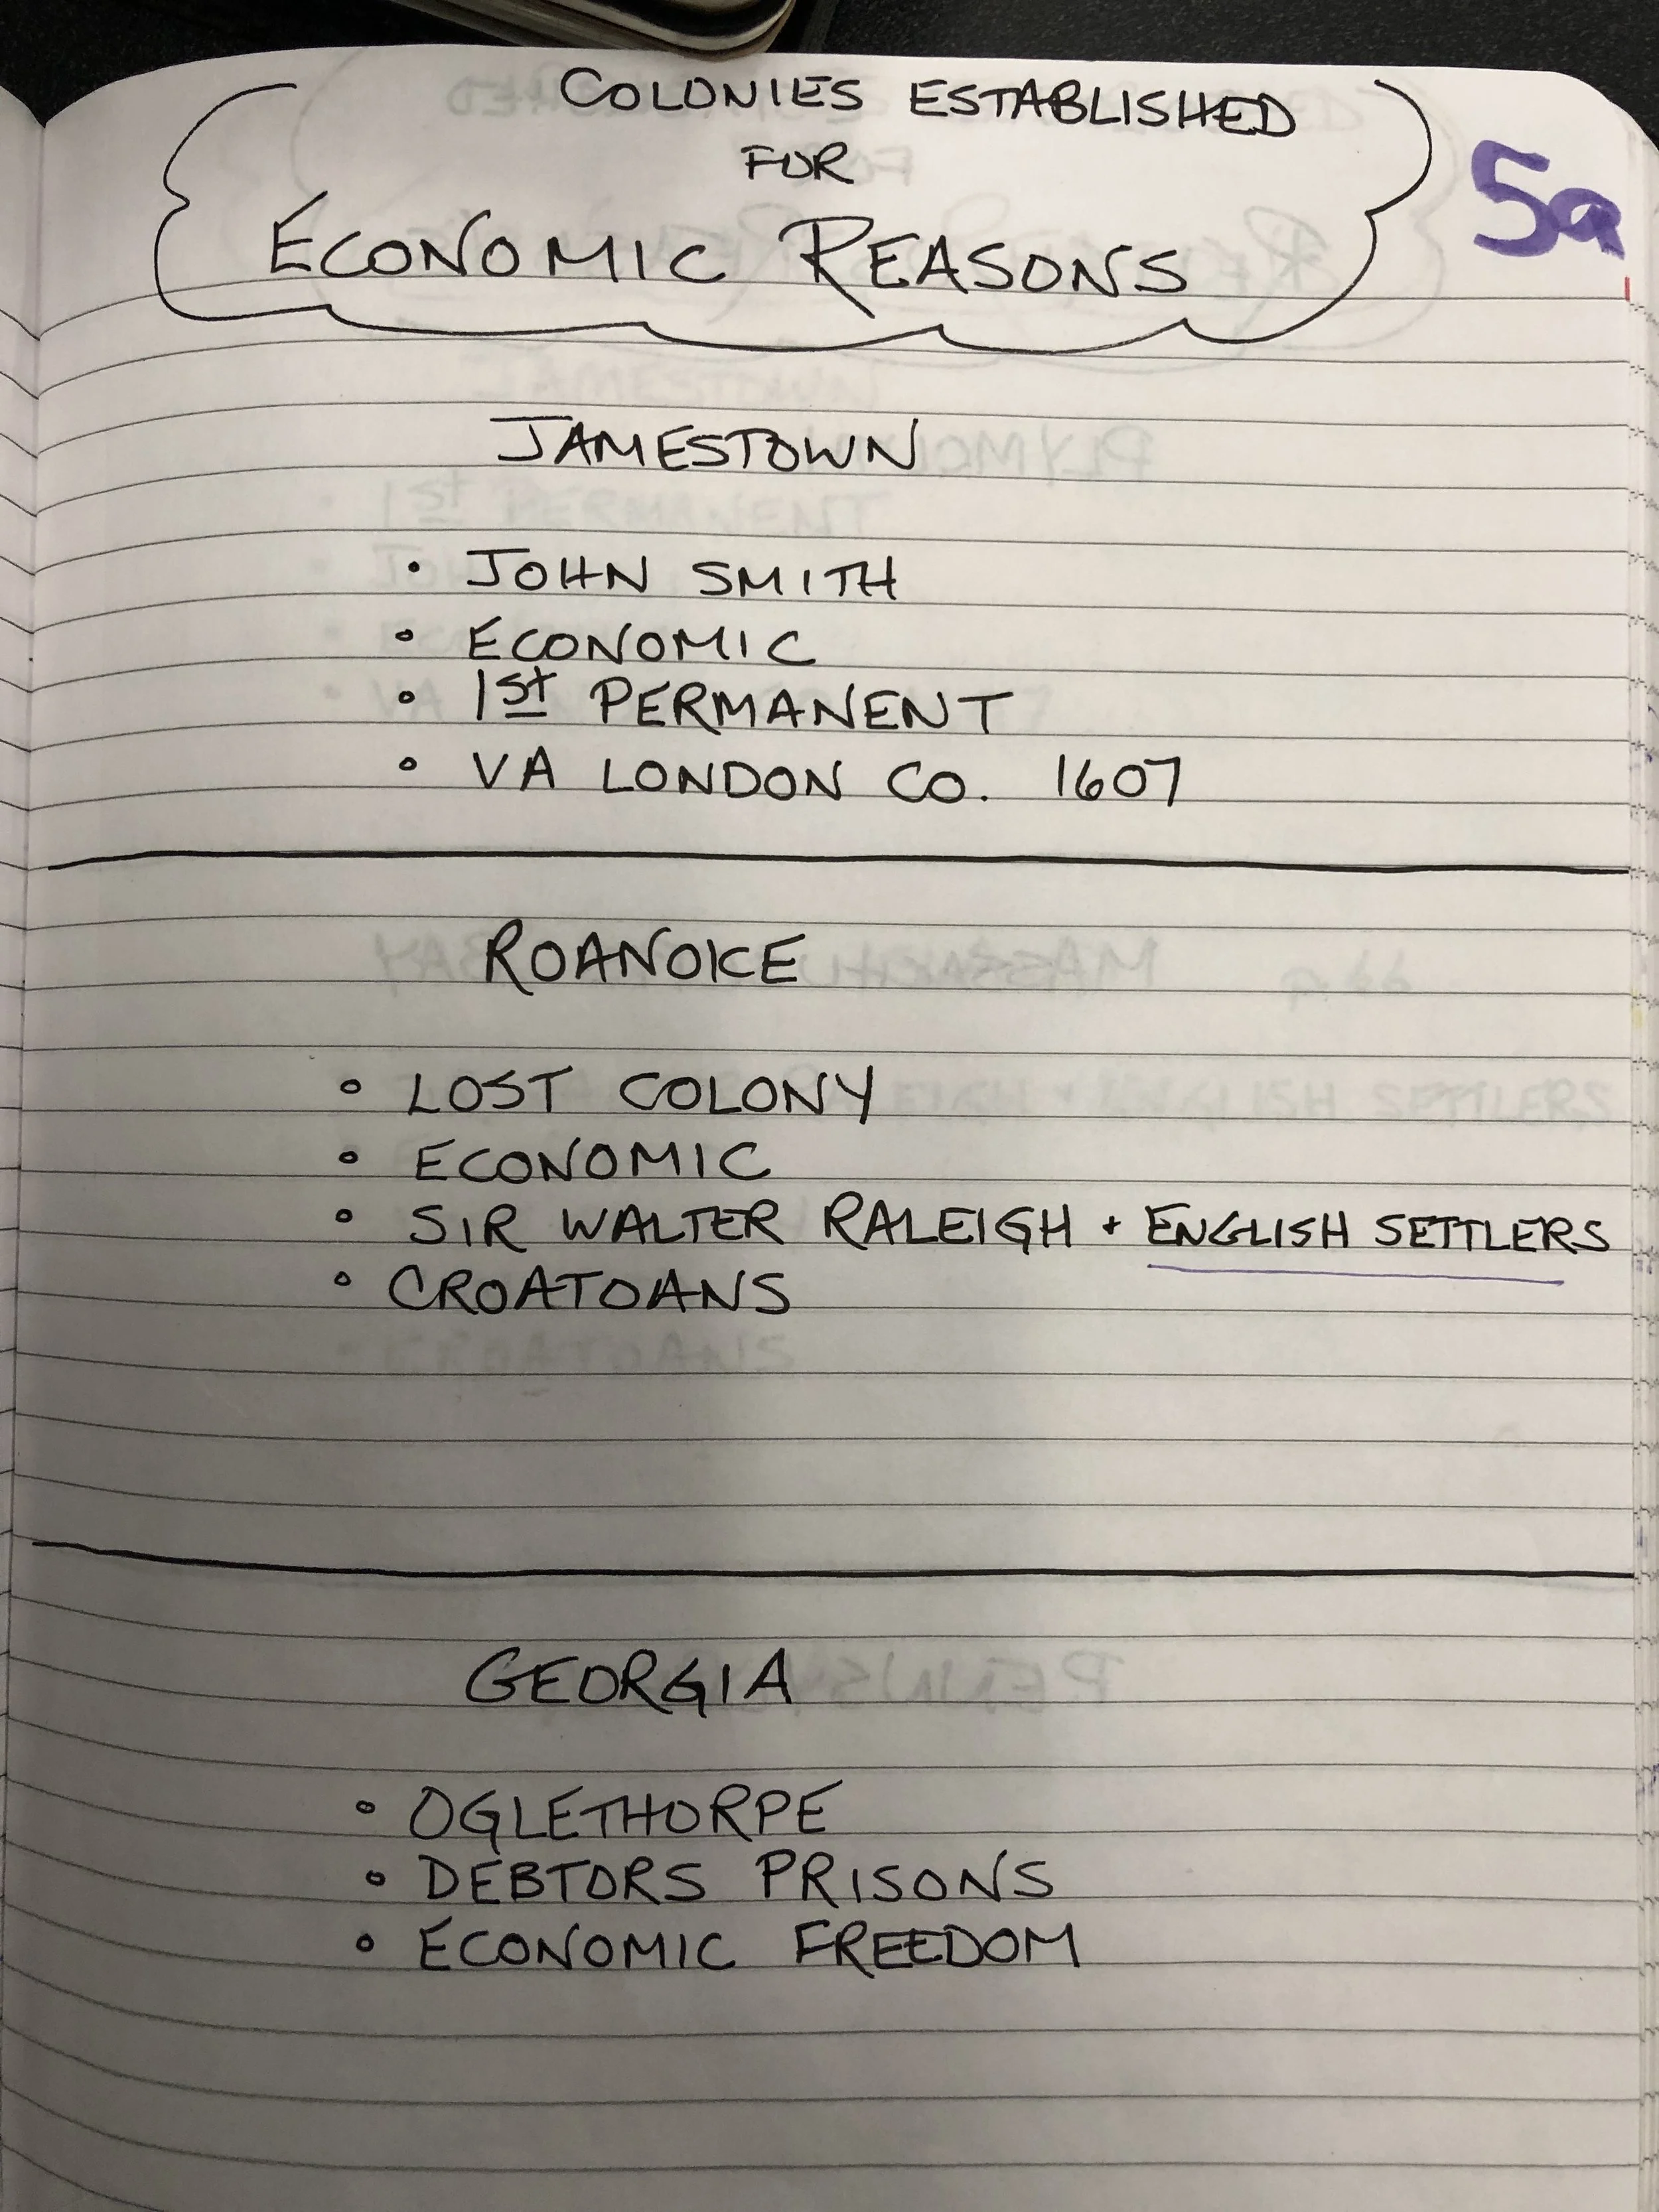 COLONIES ESTABLISHED
FOR
ECONOMIC REASONS
5a
JAMESTOWN
• JOHN SMITH
• ECONOMIC
• 1st PERMANENT
• VA LONDON CO. 1607
ROANOKE
• LOST COLONY
• ECONOMIC
• SIR WALTER RALEIGH + ENGLISH SETTLERS
• CROATOANS
GEORGIA
• OGLETHORPE
• DEBTORS PRISONS
• ECONOMIC FREEDOM